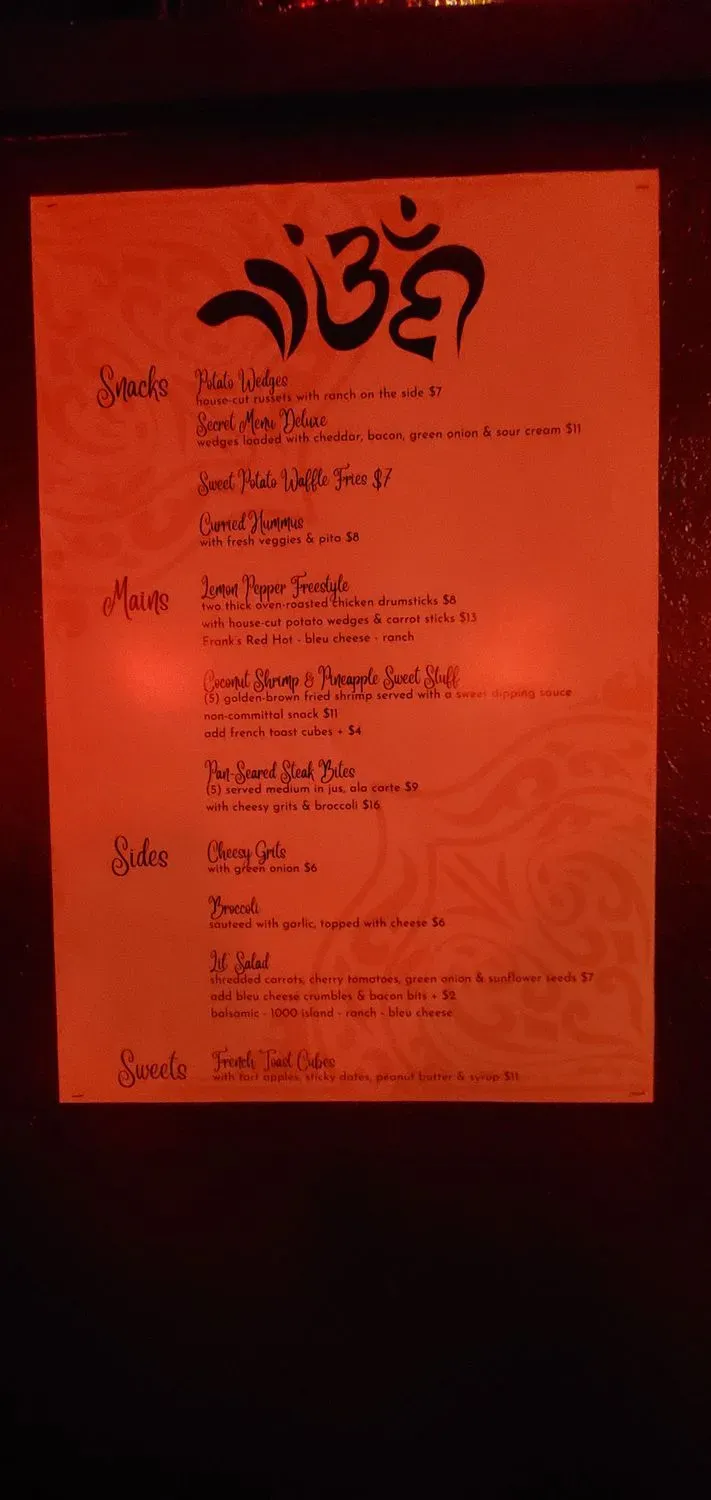 Snacks
Potato Wedges
house-cut russets with ranch on the side $7
Secret Menu Deluxe
wedges loaded with cheddar, bacon, green onion & sour cream $11
Sweet Potato Waffle Fries $7
Curried Hummus
with fresh veggies & pita $8
Mains
Lemon Pepper Freestyle
two thick oven-roasted chicken drumsticks $8
with house-cut potato wedges & carrot sticks $13
Frank's Red Hot - bleu cheese - ranch
Coconut Shrimp & Pineapple Sweet Stuff
(5) golden-brown fried shrimp served with a sweet dipping sauce
non-committal snack $11
add french toast cubes + $4
Pan-Seared Steak Bites
(5) served medium in jus, ala carte $9
with cheesy grits & broccoli $16
Sides
Cheesy Grits
with green onion $6
Broccoli
sauteed with garlic, topped with cheese $6
Lil' Salad
shredded carrots, cherry tomatoes, green onion & sunflower seeds $7
add bleu cheese crumbles & bacon bits + $2
balsamic - 1000 island - ranch - bleu cheese
Sweets
French Toast Cubes
with tart apples, sticky dates, peanut butter & syrup $11